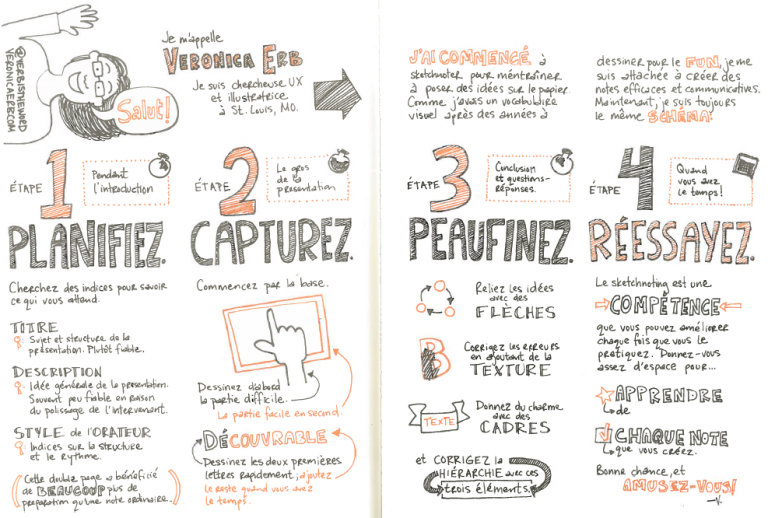 @VERBISTHEWORD
VERONICAERB.COM
Salut!
Je m'appelle
VERONICA ERB
Je suis chercheuse UX
et illustratrice
à St. Louis, MO.
J'AI COMMENCÉ à
sketchnoter pour m'entraîner
à poser des idées sur le papier.
Comme j'avais un vocabulaire
visuel après des années à
dessiner pour le FUN, je me
suis attachée à créer des
notes efficaces et communicatives.
Maintenant, je suis toujours
le même SCHÉMA:
ÉTAPE 1
Pendant
l'introduction
PLANIFIEZ.
Cherchez des indices pour savoir
ce qui vous attend.
TITRE
Sujet et structure de la
présentation. Plutôt fiable.
DESCRIPTION
Idée générale de la présentation.
Souvent peu fiable en raison
du polissage de l'intervenant.
STYLE de l'ORATEUR
Indices sur la structure
et le rythme.
(Cette double page a bénéficié
de BEAUCOUP plus de
préparation qu'une note ordinaire.)
ÉTAPE 2
Le gros
de la
présentation
CAPTUREZ.
Commencez par la base.
Dessinez d'abord
la partie difficile.
La partie facile en second.
DÉCOUVRABLE
Dessinez les deux premières
lettres rapidement; ajoutez
le reste quand vous avez
le temps.
ÉTAPE 3
Conclusion
et questions-
réponses.
PEAUFINEZ.
Reliez les idées
avec des
FLÈCHES
B
Corrigez les erreurs
en ajoutant de la
TEXTURE
TEXTE
Donnez du charme
avec des
CADRES
et CORRIGEZ la
HIÉRARCHIE avec ces
trois éléments.
ÉTAPE 4
Quand
vous avez
le temps!
RÉESSAYEZ.
Le sketchnoting est une
COMPÉTENCE
que vous pouvez améliorer
chaque fois que vous le
pratiquez. Donnez-vous
assez d'espace pour...
APPRENDRE
de
CHAQUE NOTE
que vous créez.
Bonne chance, et
AMUSEZ-VOUS!